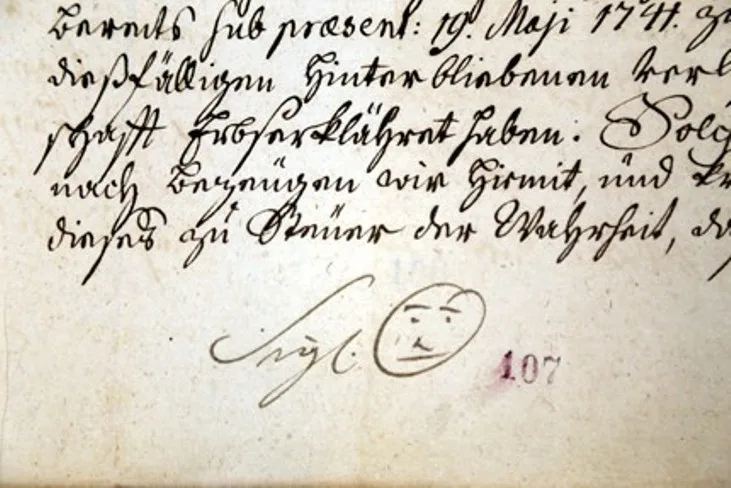 bereits sub præsent: 19. Maji 1741. zu
dießfälligen Hinterbliebenen Verl
schafft Erbserklähret haben. Solch
nach bezeugen wir hiemit, und kr
dieses zu Steüer der Wahrheit, da
Sigl.
107